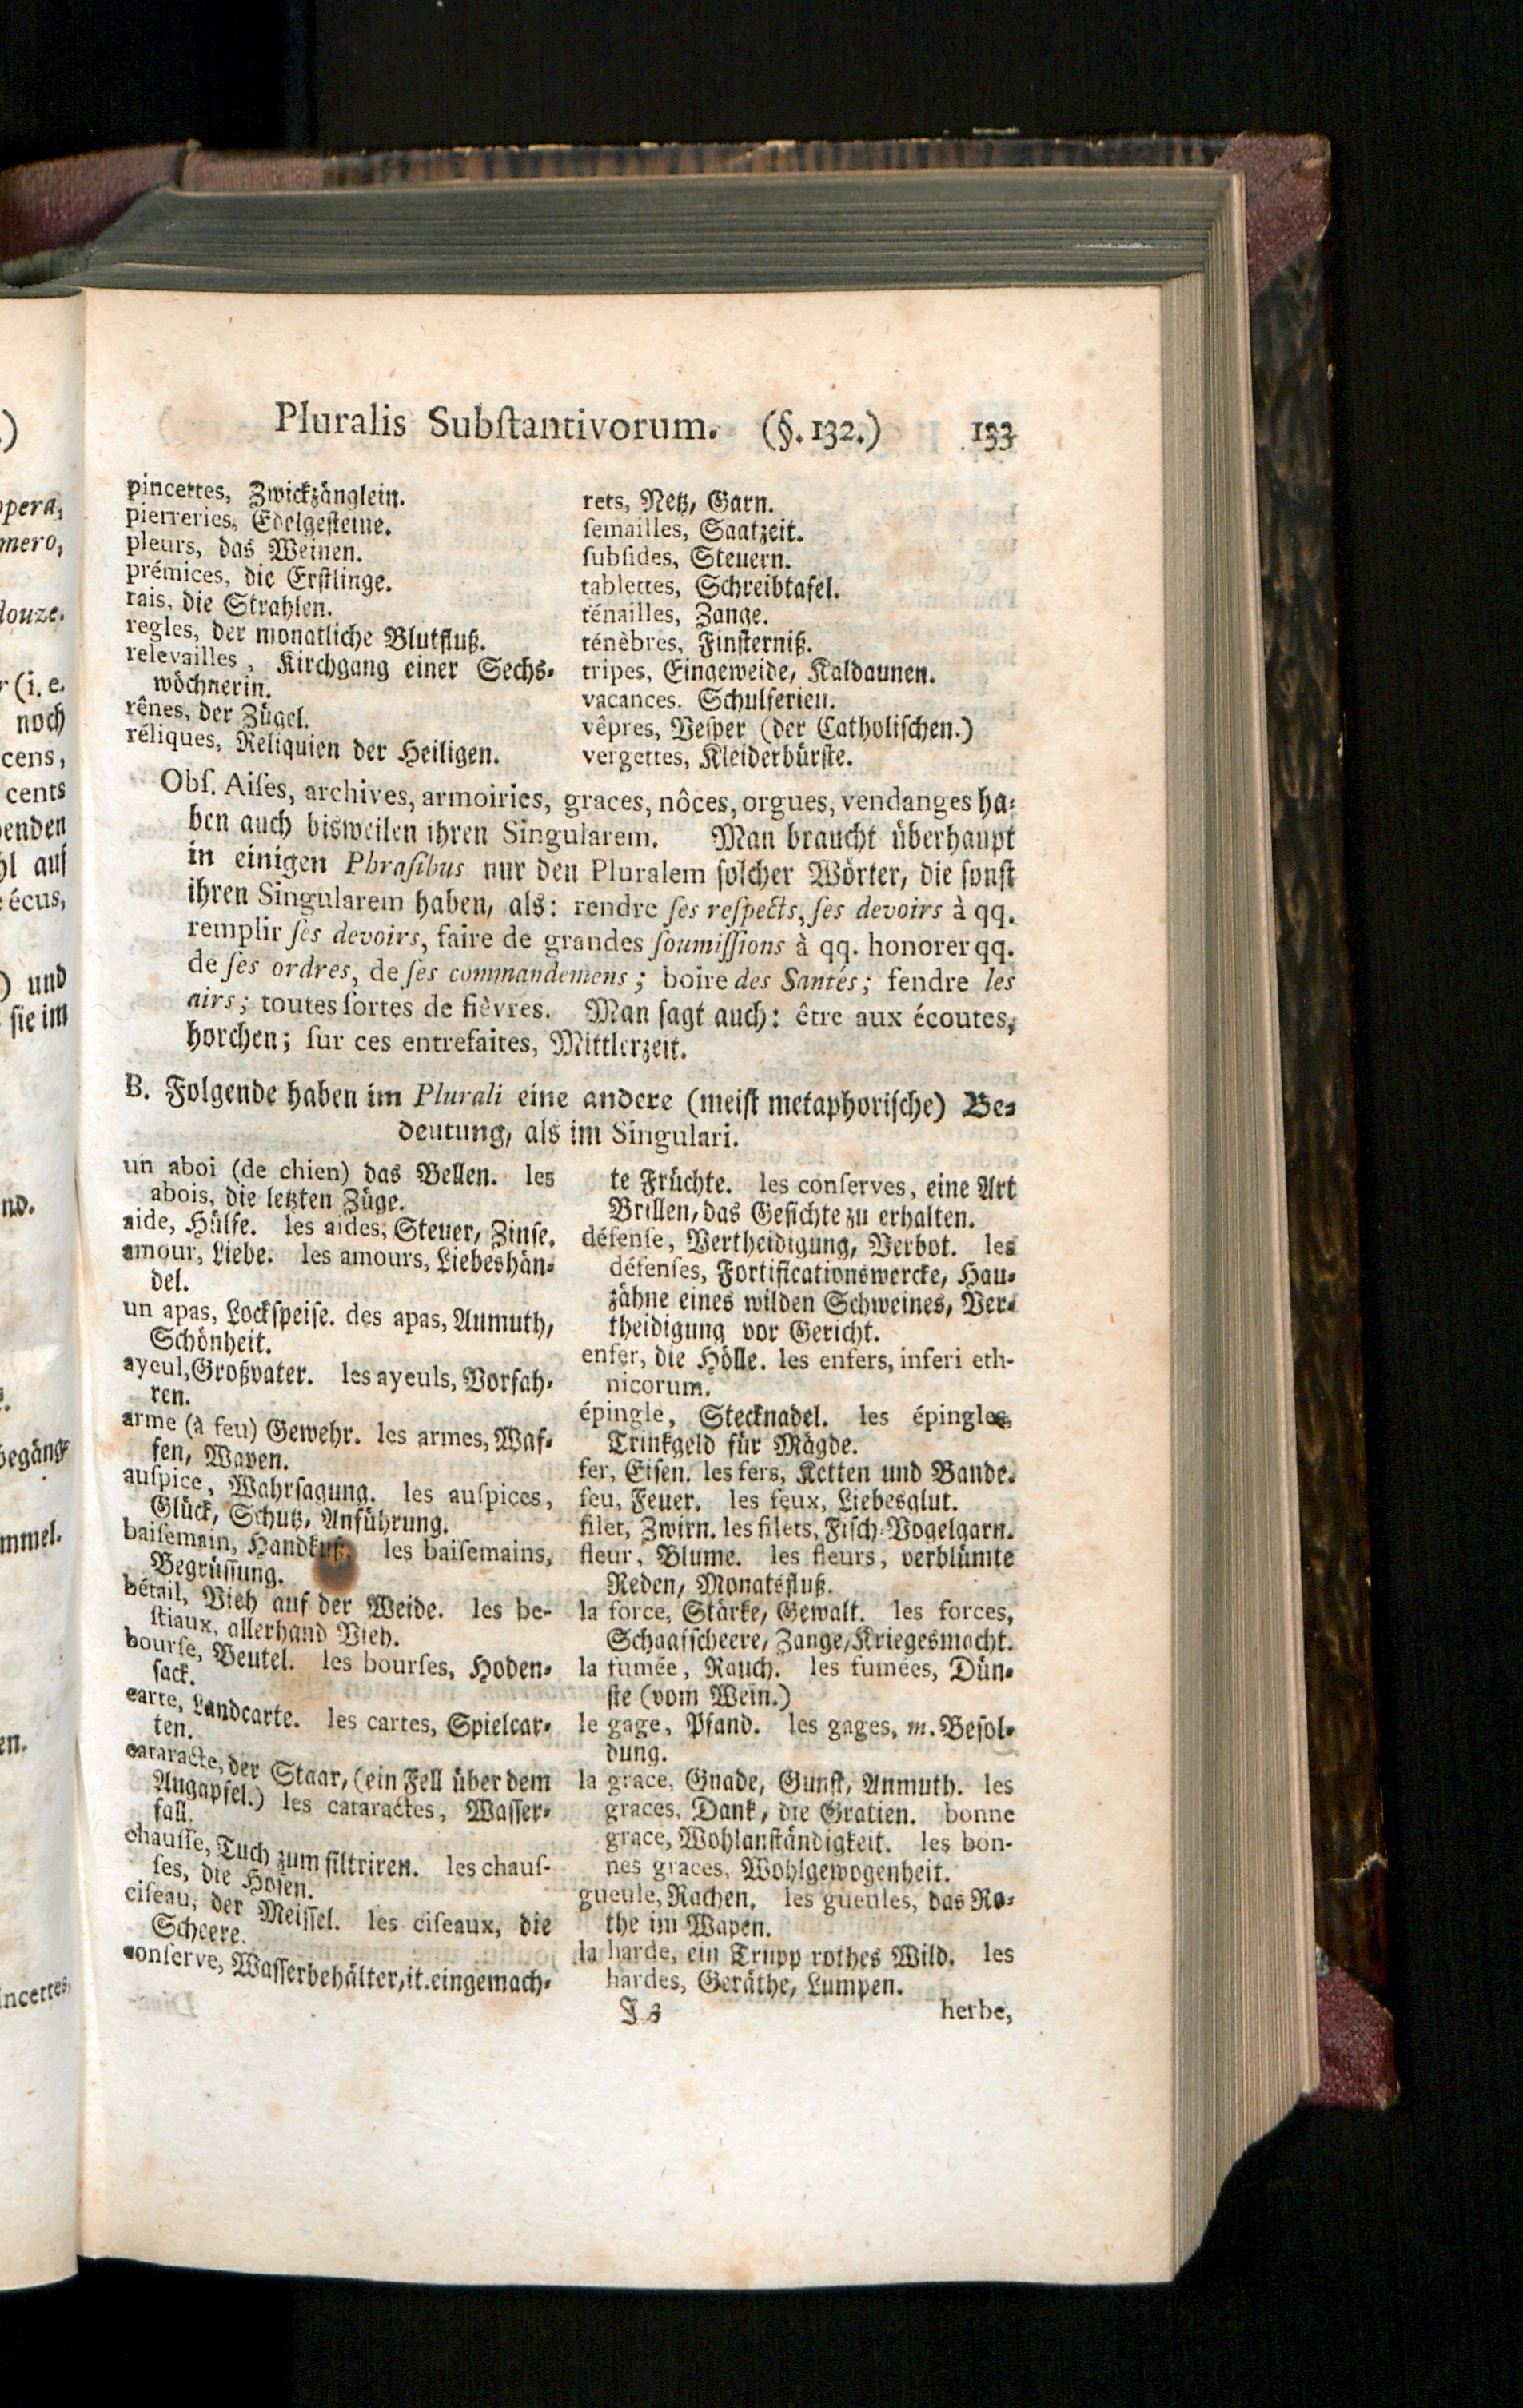 Pluralis Subſtantivorum. (§. 132.) 133
pincettes, Zwickzänglein.
pierreries, Edelgeſteine.
pleurs, das Weinen.
prémices, die Erſtlinge.
rais, die Strahlen.
regles, der monatliche Blutfluß.
relevailles, Kirchgang einer Sechs-
wöchnerin.
rênes, der Zügel.
réliques, Reliquien der Heiligen.
rets, Netz, Garn.
ſemailles, Saatzeit.
ſubſides, Steuern.
tablettes, Schreibtafel.
ténailles, Zange.
ténèbres, Finſterniß.
tripes, Eingeweide, Kaldaunen.
vacances. Schulferien.
vêpres, Veſper (der Catholiſchen.)
vergettes, Kleiderbürſte.
Obſ. Aiſes, archives, armoiries, graces, nôces, orgues, vendanges ha-
ben auch bisweilen ihren Singularem. Man braucht überhaupt
in einigen Phraſibus nur den Pluralem ſolcher Wörter, die ſonſt
ihren Singularem haben, als: rendre ſes reſpects, ſes devoirs à qq.
remplir ſes devoirs, faire de grandes ſoumiſſions à qq. honorer qq.
de ſes ordres, de ſes commandemens; boire des Santés; fendre les
airs; toutes ſortes de fièvres. Man ſagt auch: être aux écoutes,
horchen; ſur ces entrefaites, Mittlerzeit.
B. Folgende haben im Plurali eine andere (meiſt metaphoriſche) Be-
deutung, als im Singulari.
un aboi (de chien) das Bellen. les
abois, die letzten Züge.
aide, Hülfe. les aides, Steuer, Zinſe.
amour, Liebe. les amours, Liebeshän-
del.
un apas, Lockſpeiſe. des apas, Anmuth,
Schönheit.
ayeul, Großvater. les ayeuls, Vorfah-
ren.
arme (à feu) Gewehr. les armes, Waf-
fen, Wapen.
auſpice, Wahrſagung. les auſpices,
Glück, Schutz, Anführung.
baiſemain, Handkuß. les baiſemains,
Begrüſſung.
bétail, Vieh auf der Weide. les be-
ſtiaux, allerhand Vieh.
bourſe, Beutel. les bourſes, Hoden-
ſack.
carte, Landcarte. les cartes, Spielcar-
ten.
cataracte, der Staar, (ein Fell über dem
Augapfel.) les cataractes, Waſſer-
fall.
chauſſe, Tuch zum filtriren. les chauſ-
ſes, die Hoſen.
ciſeau, der Meiſſel. les ciſeaux, die
Scheere.
conſerve, Waſſerbehälter, it. eingemach-
te Früchte. les conſerves, eine Art
Brillen, das Geſichte zu erhalten.
défenſe, Vertheidigung, Verbot. les
défenſes, Fortificationswercke, Hau-
zähne eines wilden Schweines, Ver-
theidigung vor Gericht.
enfer, die Hölle. les enfers, inferi eth-
nicorum.
épingle, Stecknadel. les épingles,
Trinkgeld für Mägde.
fer, Eiſen. les fers, Ketten und Bande.
feu, Feuer. les feux, Liebesglut.
filet, Zwirn. les filets, Fiſch-Vogelgarn.
fleur, Blume. les fleurs, verblümte
Reden, Monatsfluß.
la force, Stärke, Gewalt. les forces,
Schaafſcheere, Zange, Kriegesmacht.
la fumée, Rauch. les fumées, Dün-
ſte (vom Wein.)
le gage, Pfand. les gages, m. Beſol-
dung.
la grace, Gnade, Gunſt, Anmuth. les
graces, Dank, die Gratien. bonne
grace, Wohlanſtändigkeit. les bon-
nes graces, Wohlgewogenheit.
gueule, Rachen. les gueules, das Ro-
the im Wapen.
la harde, ein Trupp rothes Wild. les
hardes, Geräthe, Lumpen.
J 3 herbe,